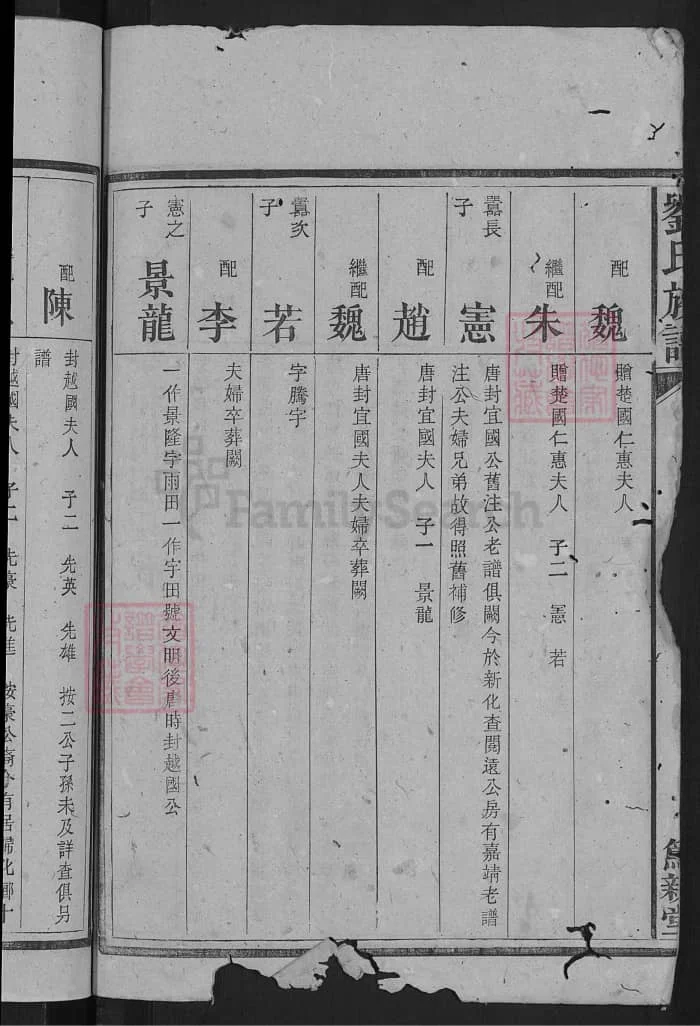 劉氏族譜
篤親堂
配 魏 贈楚國仁惠夫人
繼配 朱 贈楚國仁惠夫人 子二 憲 若
囂長子 憲 唐封宜國公舊注公老譜俱闕今於新化查閱遠公房有嘉靖老譜
注公夫婦兄弟故得照舊補修
配 趙 唐封宜國夫人 子一 景龍
繼配 魏 唐封宜國夫人夫婦卒葬闕
囂次子 若 字騰宇
配 李 夫婦卒葬闕
憲之子 景龍 一作景隆字雨田一作字田號文明後唐時封越國公
配 陳 封越國夫人 子二 先英 先雄 按二公子孫未及詳查俱另
譜
封越國夫人 子二 先豪 先進 按豪公裔今有居歸化鄉十
FamilySearch